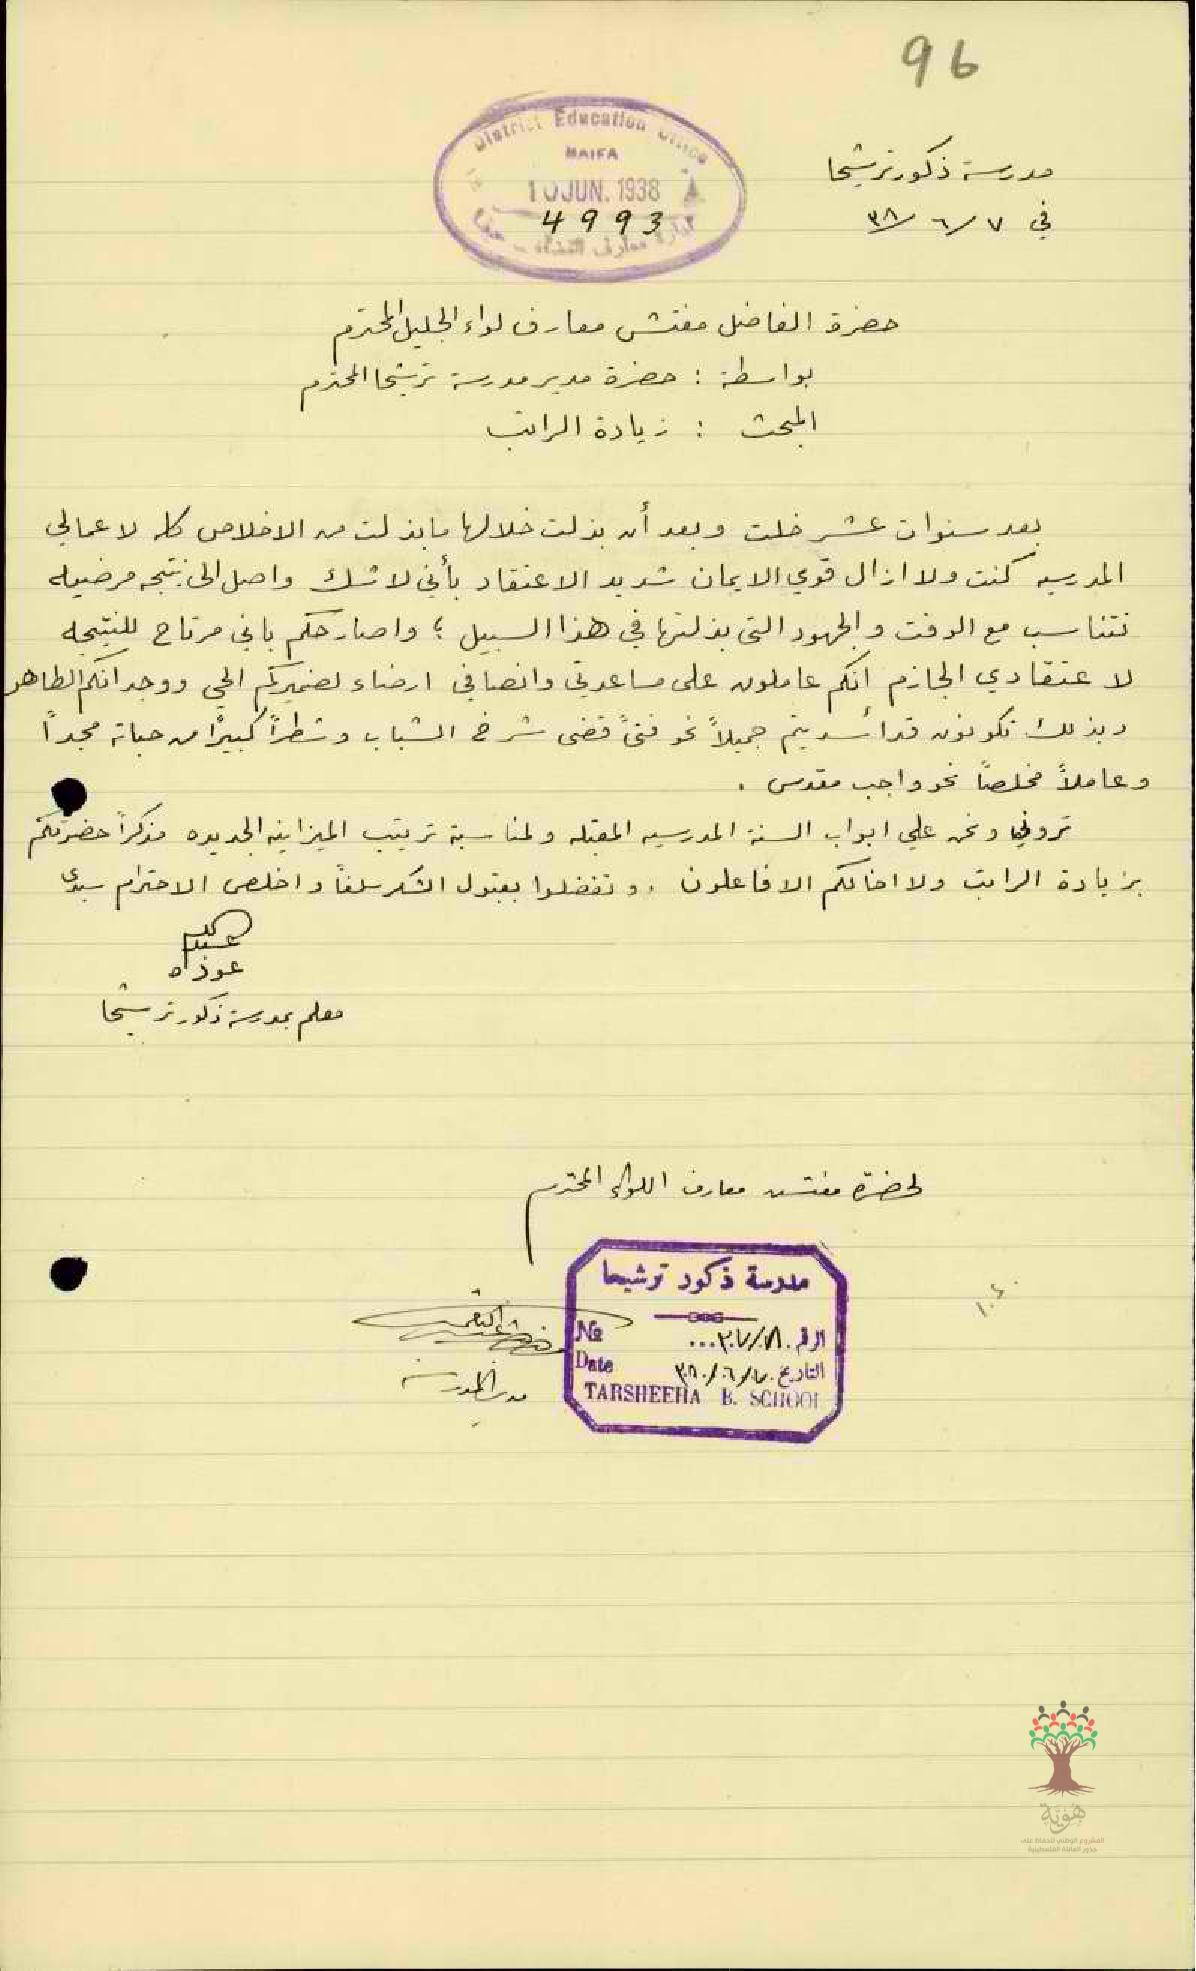 96
District Education Office
HAIFA
10 JUN. 1938
4993
ادارة معارف القضاء - حيفا
مدرسة ذكور ترشيحا
في ٧/٦/٣٨
حضرة الفاضل مفتش معارف لواء الجليل المحترم
بواسطة : حضرة مدير مدرسة ترشيحا المحترم
المبحث : زيادة الراتب
بعد سنوات عشر خلت وبعد أن بذلت خلالها ما بذلت من الاخلاص كله لاعمالي
المدرسيه كنت ولا ازال قوي الايمان شديد الاعتقاد بأني لا شك واصل الى نتيجه مرضيه
تتناسب مع الوقت والجهود التي بذلتها في هذا السبيل ؛ واصارحكم باني مرتاح للنتيجه
لاعتقادي الجازم انكم عاملون على مساعدتي وانصافي ارضاء لضميركم الحي ووجدانكم الطاهر
وبذلك تكونون قد أسديتم جميلاً نحو فتىً قضى شرخ الشباب وشطراً كبيرًا من حياته مجداً
وعاملاً مخلصاً نحو واجب مقدس .
تروني ونحن علي ابواب السنة المدرسيه المقبله ولمناسبة ترتيب الميزانيه الجديده مذكراً حضرتكم
بزيادة الراتب ولا اخالكم الا فاعلون . وتفضلوا بقبول الشكر سلفاً واخلص الاحترام سيدي
عوده
معلم بمدرسة ذكور ترشيحا
لحضرة مفتش معارف اللواء المحترم
مدرسة ذكور ترشيحا
№ الرقم ٣٠٧/١٨
Date التاريخ ٧/٦/٣٨
TARSHEEHA B. SCHOOL
مدير المدرسة
هوية
المشروع الوطني للحفاظ على
جذور العائلة الفلسطينية